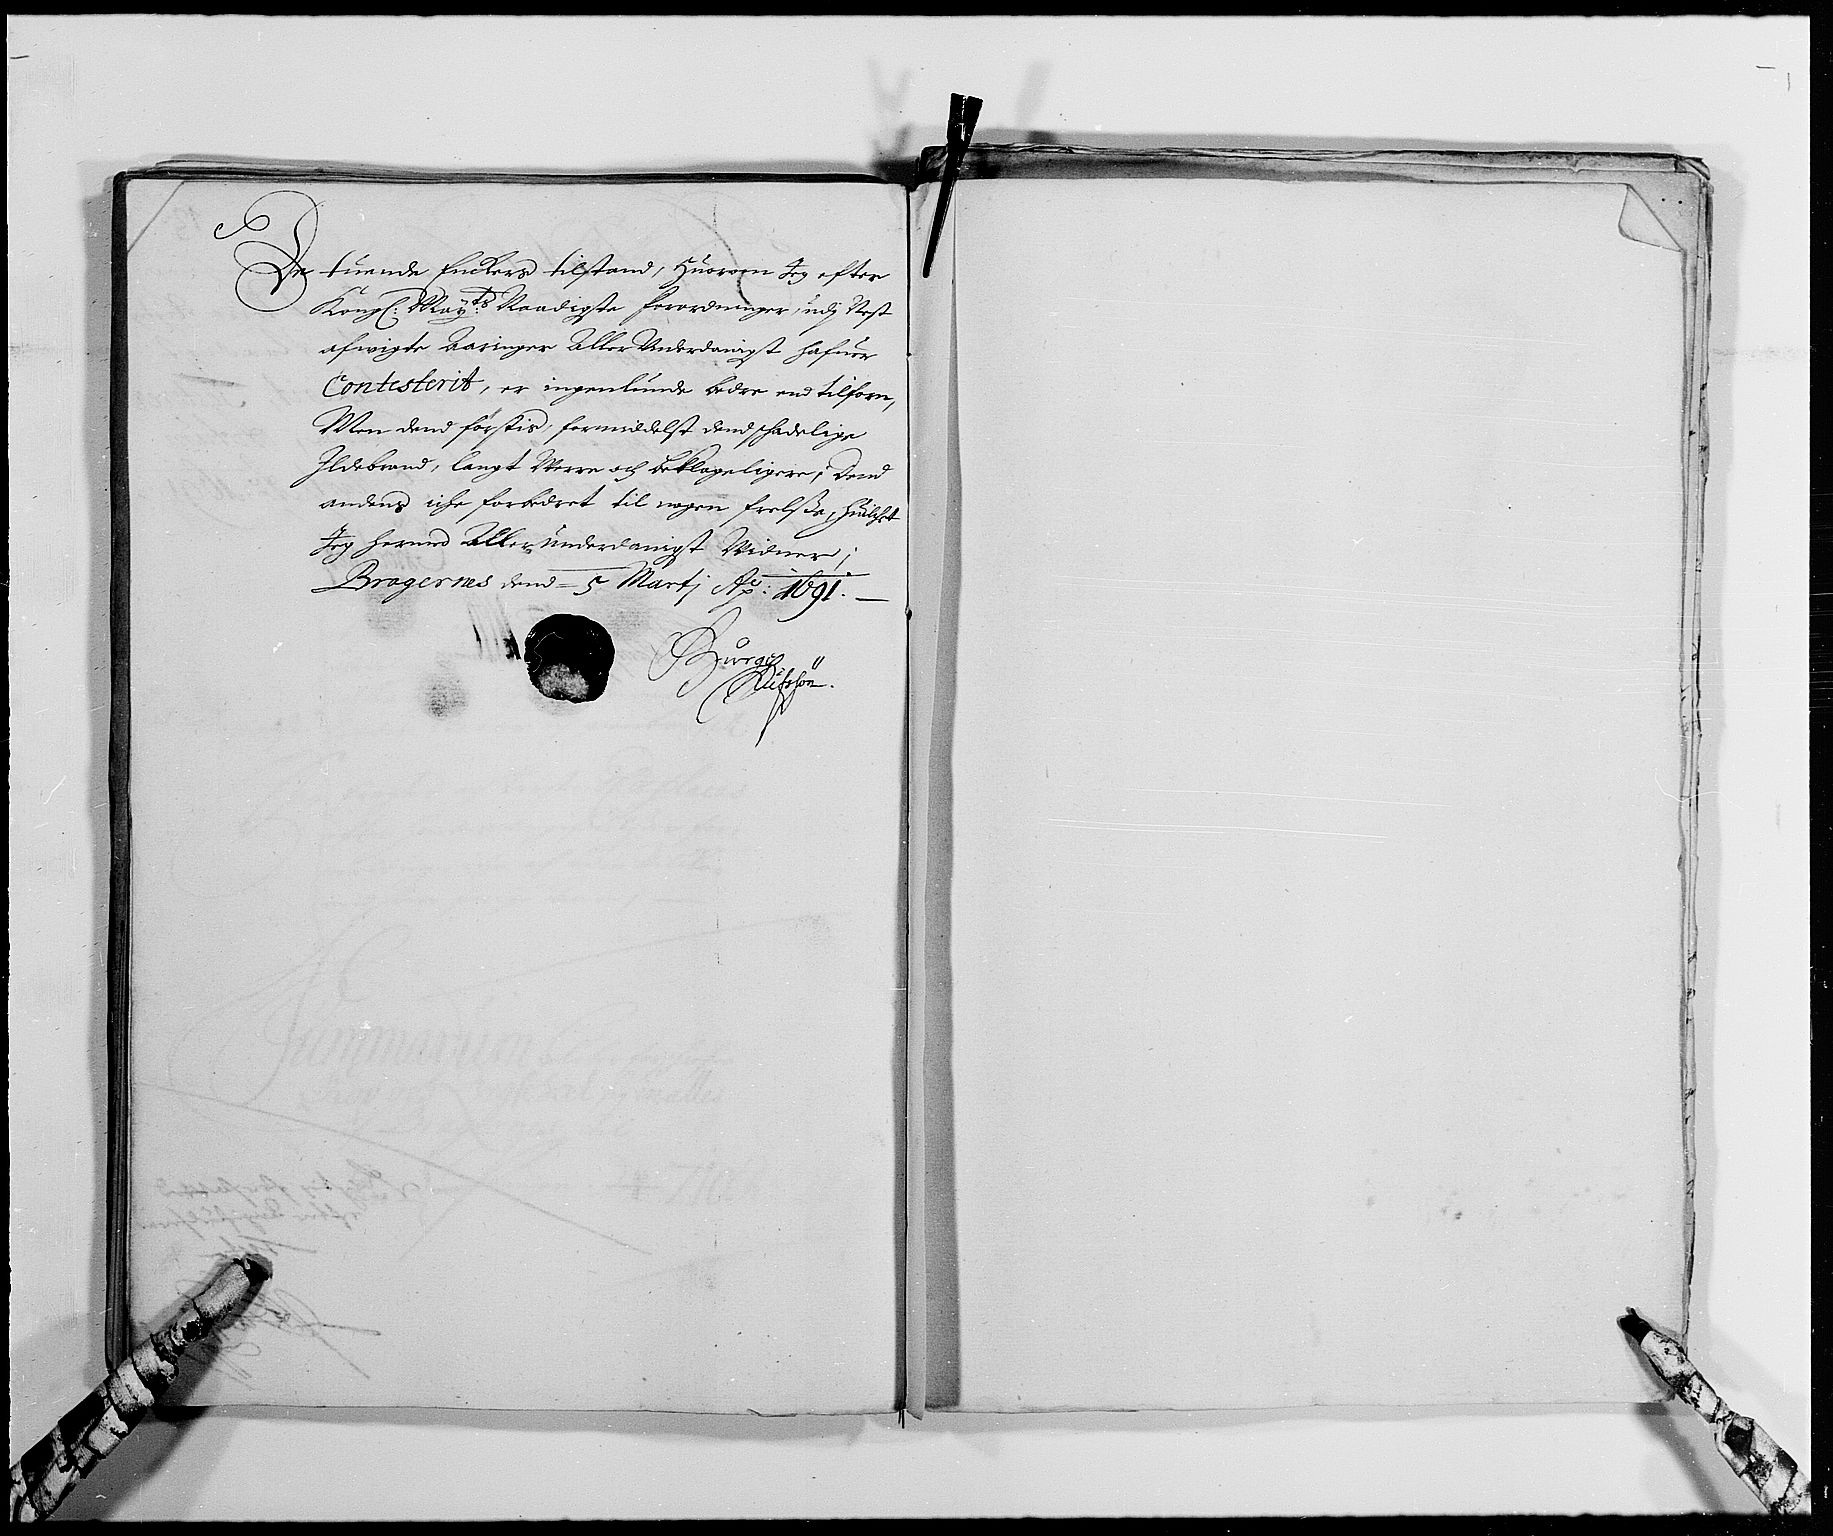 De tuende Enckers tilstand, Huorom Jeg efter
Kongl: May.ts Naadigste forordninger, udj Nest
afvigte Aaringer AllerUnderdanigst hafuer
Contesterit, er ingenlunde bedre end tilforn,
Men dend førstis, formedelst dend schadelige
Ildebrand, langt Werre och beklageligere, Dend
andens iche forbedret til nogen frelsse, huilchet
Jeg hermed Allerunderdanigst Widner;
Bragernes dend 5 Martj Ao: 1691.